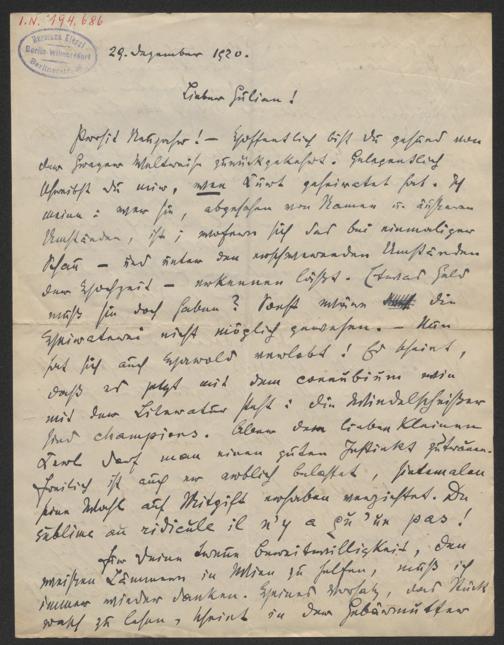 I.N. 194.686
Hermann Kienzl
Berlin-Wilmersdorf
Berlinerstr.
29. Dezember 1920.
Lieber Julian!
Prosit Neujahr! – Hoffentlich bist Du gesund von
der Grazer Weltreise zurückgekehrt. Gelegentlich
schreibst Du mir, wen Kurt geheiratet hat. Ich
meine: wer sie, abgesehen von Namen u. äußeren
Umständen, ist; wofern sich das bei einmaliger
Schau – und unter den erschwerenden Umständen
der Hochzeit – erkennen läßt. Etwas Geld
muß sie doch haben? Sonst wäre die
Heiraterei nicht möglich gewesen. – Nun
hat sich auch verlobt! Es scheint,
daß es jetzt mit dem connubium wie
mit der Literatur steht: die Windelscheißer
sind champions. Aber dem lieben kleinen
Kerl darf man einen guten Instinkt zutrauen.
Freilich ist auch er erblich belastet, sintemalen
seine Wahl auf Mitgift erhaben verzichtet. Du
sublime au ridicule il n'y a qu'un pas!
Für Deine treue Bereitwilligkeit, den
weißen Lämmern in Wien zu helfen, muß ich
immer wieder danken. Vorsatz, das Stück
rasch zu lesen, scheint in der Gebärmutter